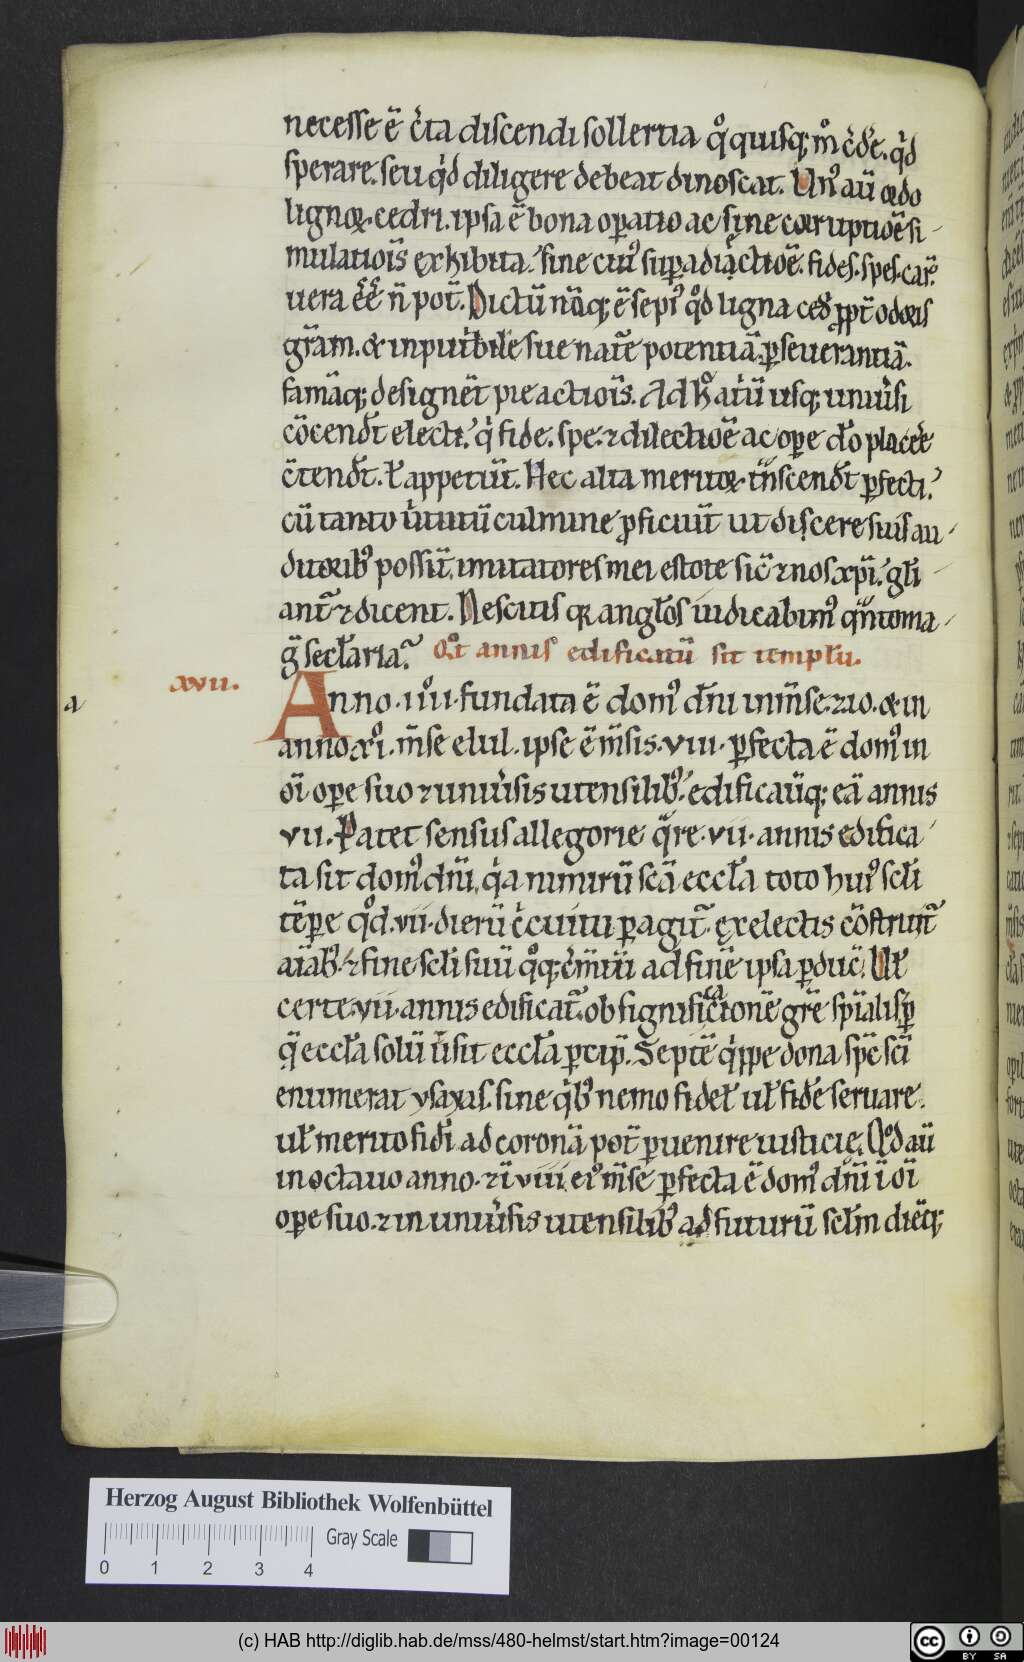 necesse ē c̄ta discendi sollertia qͦ quisq; m̊ c̄dē. qͥd
sperare. seu qͥd diligere debeat dinoscat. Unꝰ aū ordo
lignoꝝ. cedri. ipsa ē bona oꝑatio ac sine corruptiōē si-
mulatiōis exhibita. sine cuiꝰ suꝑadiectiōē. fides. spes. caꝛ̄.
uera ēē n̄ pot̄. Dictū nāq; ē sepiꝰ qͦd ligna ced̄ ꝓpt̄ odoris
gr̄am. & inputͥbilē sue natͬe potentiā. ꝑseuerantiā.
famāq; designēt pie actiōis. Ad h̊ atͥū usq; uniu̓si
cōcend̄t electi. qͥ fide. spe. ⁊ dilectiōē ac oꝑe dō placēe
c̄tend̄t. ł appetūt. Hec alta meritoꝝ. tn̄scend̄t ꝑfecti.
cū tanto uͥtutū culmine ꝓficiūt ut discere suis au-
ditoribꝰ possīt. imitatores mei estote sic̄ ⁊ nos xp̄i. gl̄i-
ant̄ ⁊ dicent. Nescitis qꝛ angl̄os iudicabimꝰ qn̄to ma-
ḡ secl̄aria. Qͦt annis edificatū sit templū.
xvii.
Anno .iiii. fundata ē domꝰ dn̄i in m̄se. zio. & in
anno xi. m̄se elul. ipse ē m̄sis. viii. ꝑfecta ē domꝰ in
oī oꝑe suo ⁊ uniu̓sis utensilibꝰ. edificauitq; eā annis
vii. Patet sensus allegorie q̄re. vii. annis edifica-
ta sit domꝰ dn̄i, qͥa nimirū sc̄a eccl̄a toto huiꝰ scl̄i
tēꝑe qͦd. vii. dierū c̄cuitu ꝑagit̄. ex electis cōstruit̄
aīabꝰ. ⁊ fine scl̄i suū qͦq; c̄m̄tū ad finē ipsa ꝑduc̄. Uł
certe. vii. annis edificat̄. ob significationē gr̄e spīalis ꝑ
q̄ eccl̄a solū u̓ sit eccl̄a ꝑcip̄. Septē qͥppe dona sp̄c sc̄i
enumerat ysayas. sine qͥbꝰ nemo fidel̄ uł fidē seruare.
uł merito fidī. ad coronā pot̄ ꝑuenire iusticie. Qͦd aū
in octauo anno. ⁊ ī viii. eiꝰ m̄se ꝑfecta ē domꝰ dn̄i ī oī
oꝑe suo. ⁊ in uniu̓sis utensilibꝰ ad futurū scl̄m dieq;
Herzog August Bibliothek Wolfenbüttel
Gray Scale
0 1 2 3 4
(c) HAB http://diglib.hab.de/mss/480-helmst/start.htm?image=00124
cc BY SA